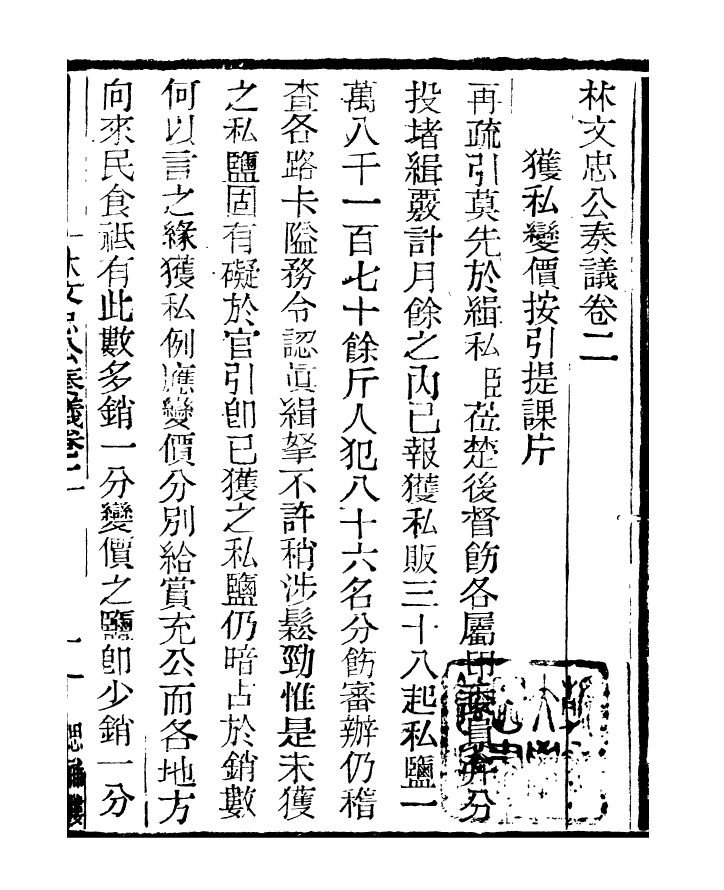 林文忠公奏議卷二
獲私變價按引提課片
再疏引莫先於緝私臣莅楚後督飭各屬印委員弁分
投堵緝覈計月餘之內已報獲私販三十八起私鹽一
萬八千一百七十餘斤人犯八十六名分飭審辦仍稽
查各路卡隘務令認真緝拏不許稍涉鬆勁惟是未獲
之私鹽固有礙於官引卽已獲之私鹽仍暗占於銷數
何以言之緣獲私例應變價分別給賞充公而各地方
向來民食祗有此數多銷一分變價之鹽卽少銷一分
林文忠公奏議卷二